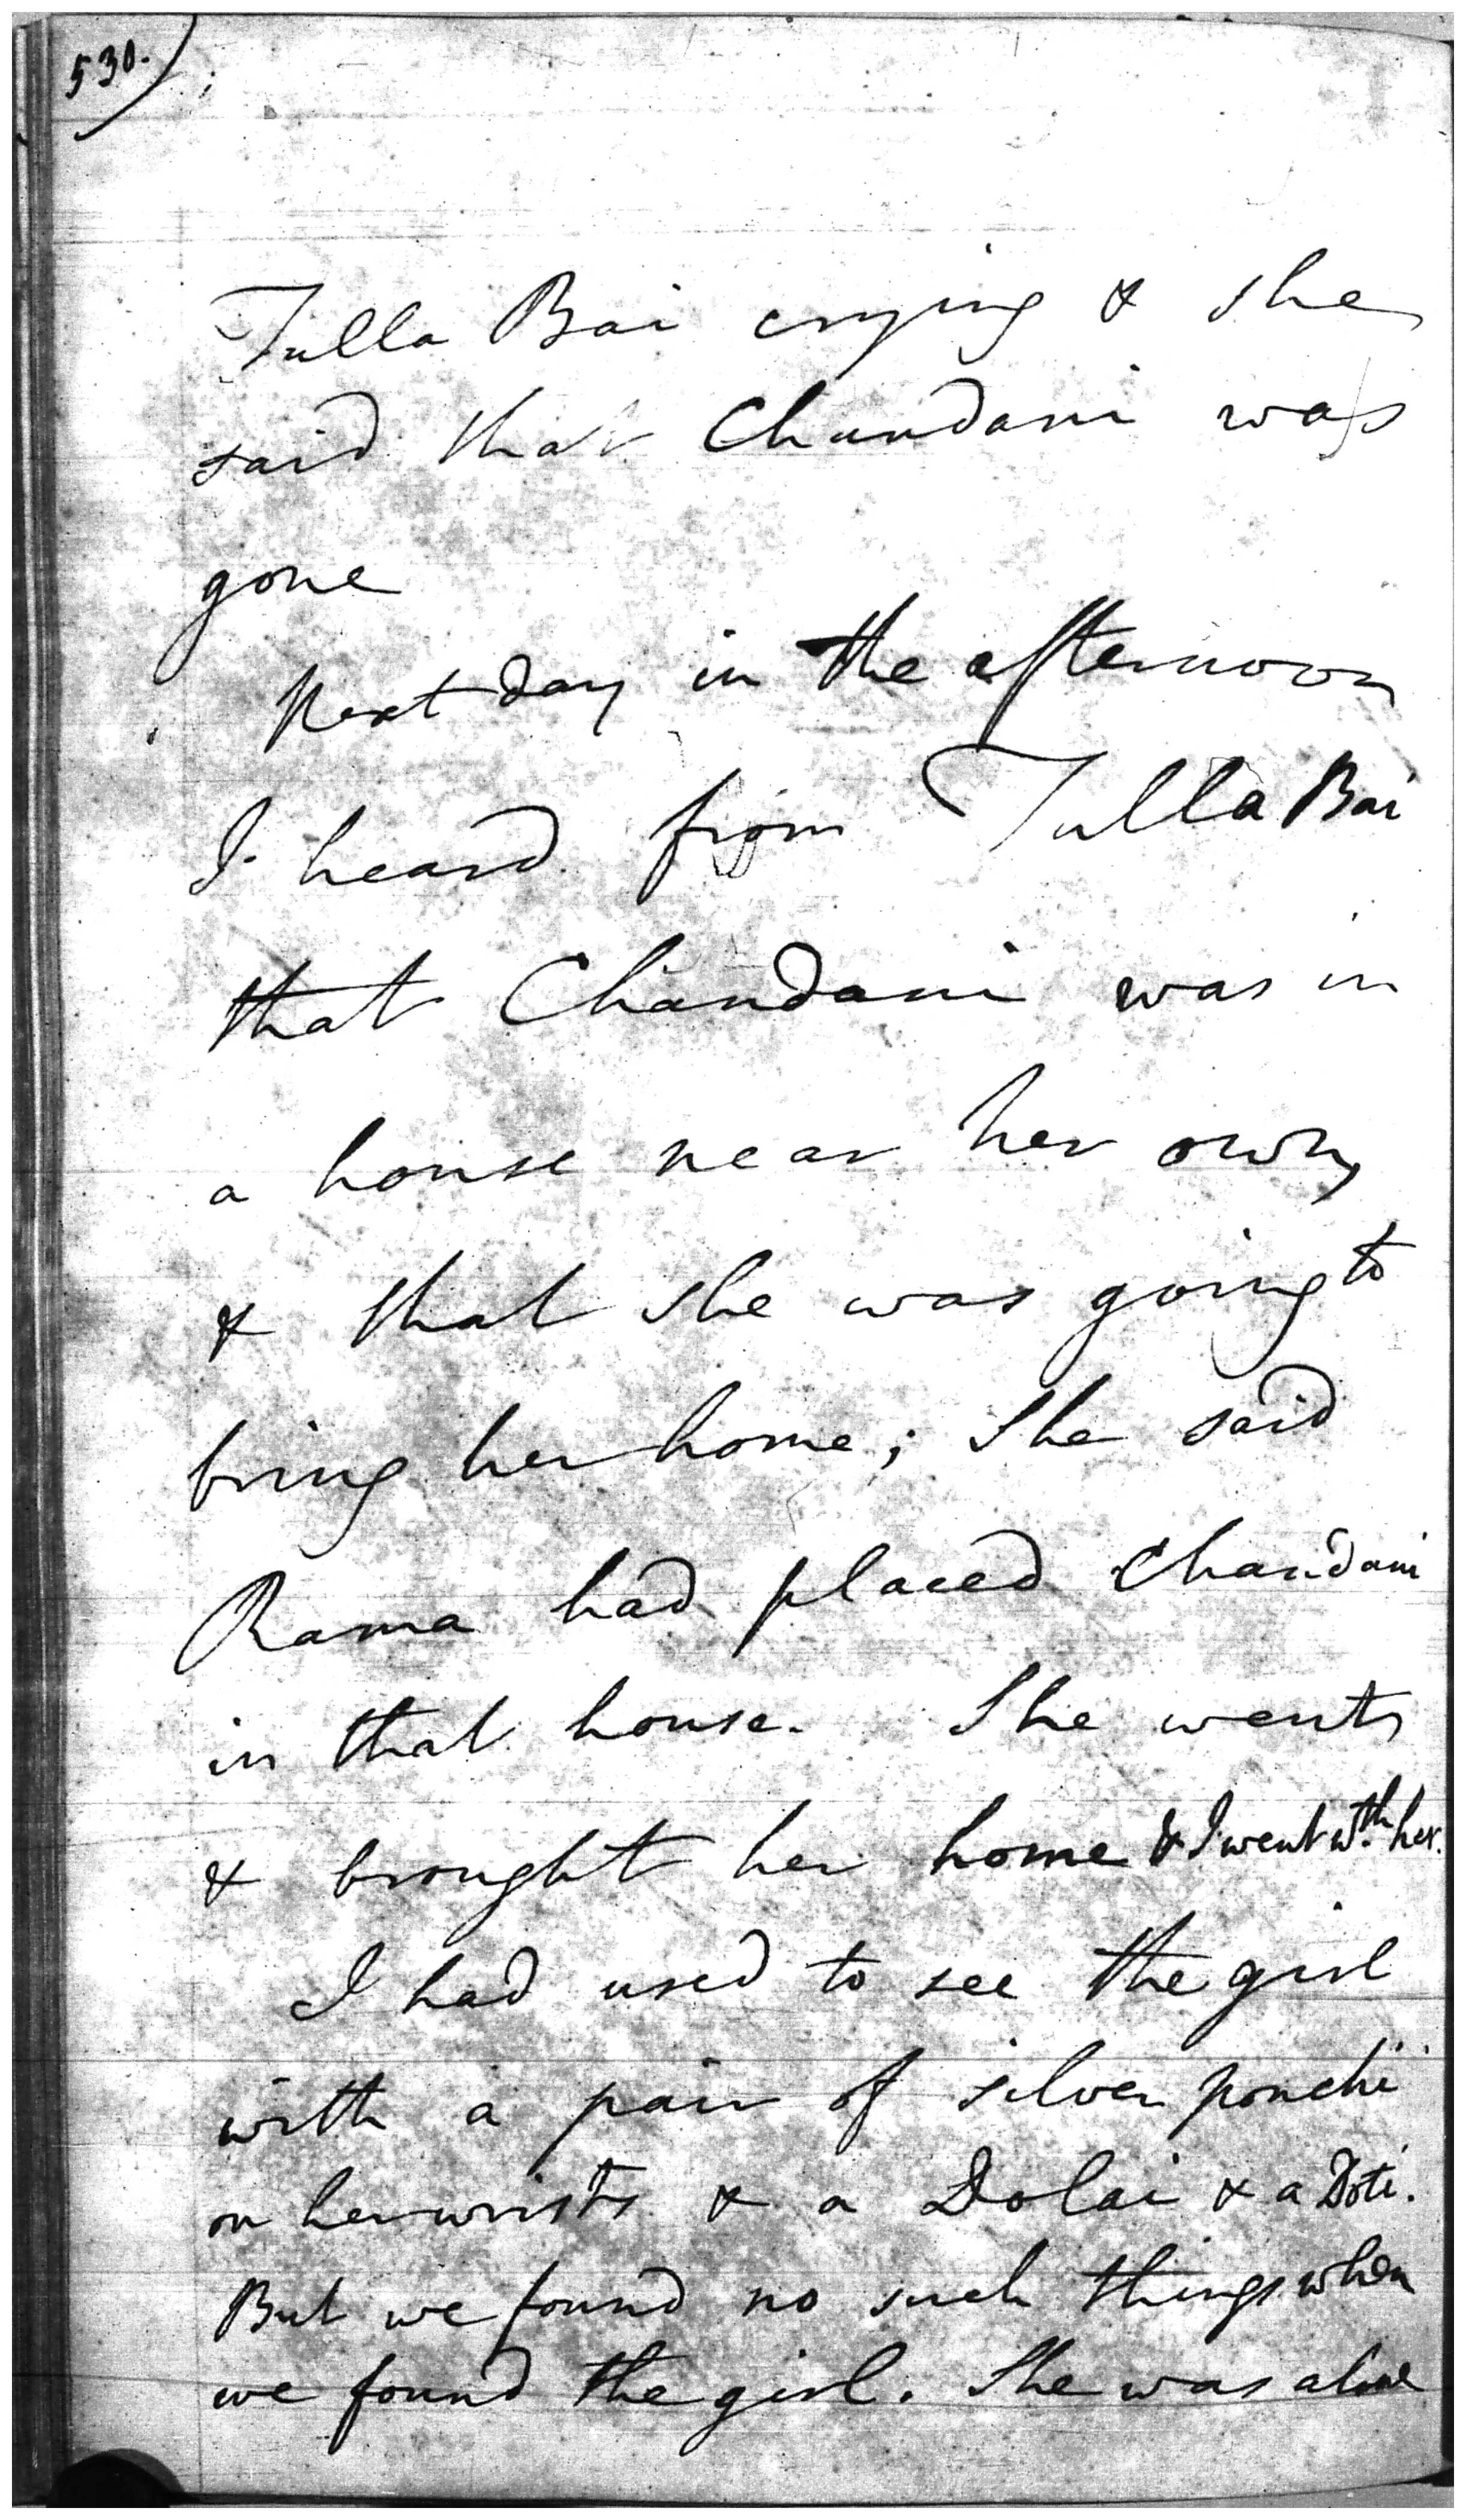 530.)
Tulla Bai crying & she
said that Chandani was
gone
Next day in the afternoon
I heard from Tulla Bai
that Chandani was in
a house near her own,
& that she was going to
bring her home; She said
Rama had placed Chandani
in that house. She went
& brought her home & I went wth. her.
I had used to see the girl
with a pair of silver ponchi
on her wrists & a Dolai & a Doti.
But we found no such things when
we found the girl. She was alone